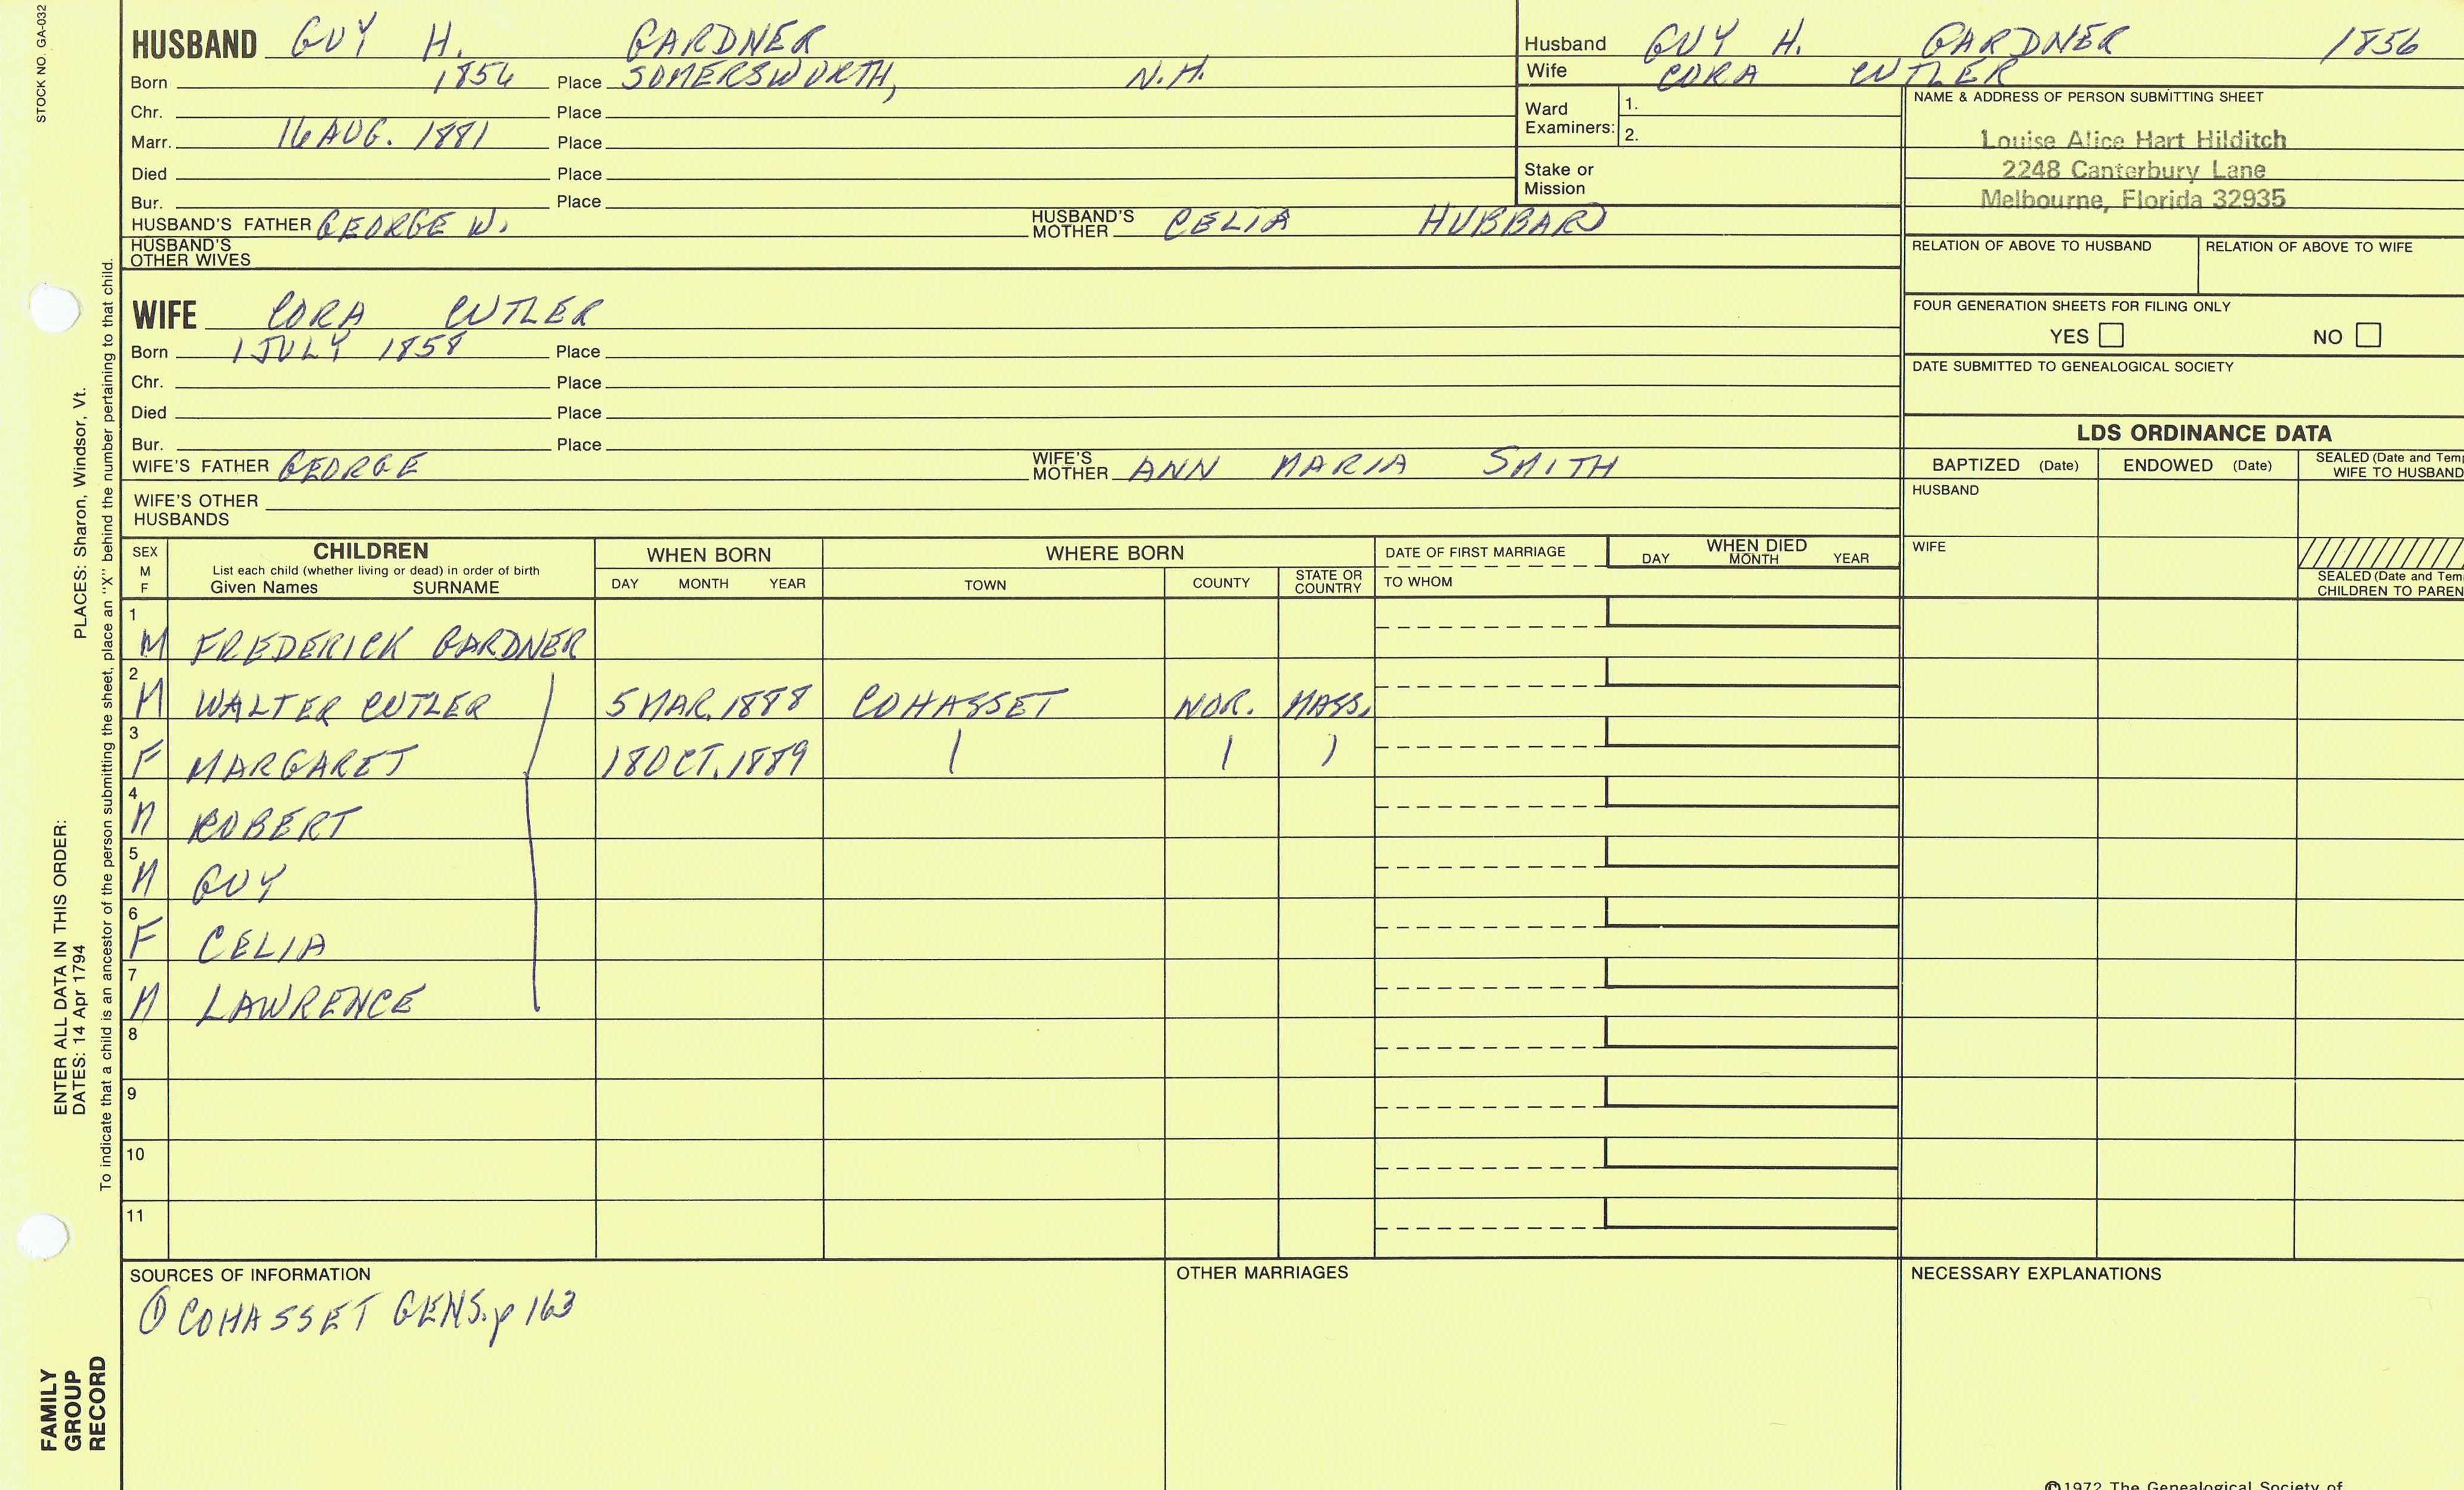 STOCK NO. GA-032
HUSBAND GUY H. GARDNER
Born 1856 Place SOMERSWORTH, N.H.
Chr. Place
Marr. 16 AUG. 1881 Place
Died Place
Bur. Place
HUSBAND'S FATHER GEORGE W. HUSBAND'S MOTHER CELIA HUBBARD
HUSBAND'S OTHER WIVES
Husband GUY H. GARDNER 1856
Wife CORA CUTLER
Ward Examiners: 1.
2.
Stake or Mission
NAME & ADDRESS OF PERSON SUBMITTING SHEET
Louise Alice Hart Hilditch
2248 Canterbury Lane
Melbourne, Florida 32935
RELATION OF ABOVE TO HUSBAND RELATION OF ABOVE TO WIFE
FOUR GENERATION SHEETS FOR FILING ONLY
YES NO
DATE SUBMITTED TO GENEALOGICAL SOCIETY
WIFE CORA CUTLER
Born 1 JULY 1858 Place
Chr. Place
Died Place
Bur. Place
WIFE'S FATHER GEORGE WIFE'S MOTHER ANN MARIA SMITH
WIFE'S OTHER HUSBANDS
LDS ORDINANCE DATA
BAPTIZED (Date) ENDOWED (Date) SEALED (Date and Temp
WIFE TO HUSBAND
HUSBAND
WIFE
SEALED (Date and Tem
CHILDREN TO PAREN
SEX M F CHILDREN WHEN BORN WHERE BORN DATE OF FIRST MARRIAGE WHEN DIED
List each child (whether living or dead) in order of birth
Given Names SURNAME DAY MONTH YEAR TOWN COUNTY STATE OR COUNTRY TO WHOM DAY MONTH YEAR
1 M FREDERICK GARDNER
2 M WALTER CUTLER 5 MAR. 1888 COHASSET NOR. MASS.
3 F MARGARET 18 OCT. 1889
4 M ROBERT
5 M GUY
6 F CELIA
7 M LAWRENCE
8
9
10
11
SOURCES OF INFORMATION
① COHASSET GENS. p 163
OTHER MARRIAGES
NECESSARY EXPLANATIONS
©1972 The Genealogical Society of
PLACES: Sharon, Windsor, Vt.
ENTER ALL DATA IN THIS ORDER:
DATES: 14 Apr 1794
To indicate that a child is an ancestor of the person submitting the sheet, place an "X" behind the number pertaining to that child.
FAMILY
GROUP
RECORD